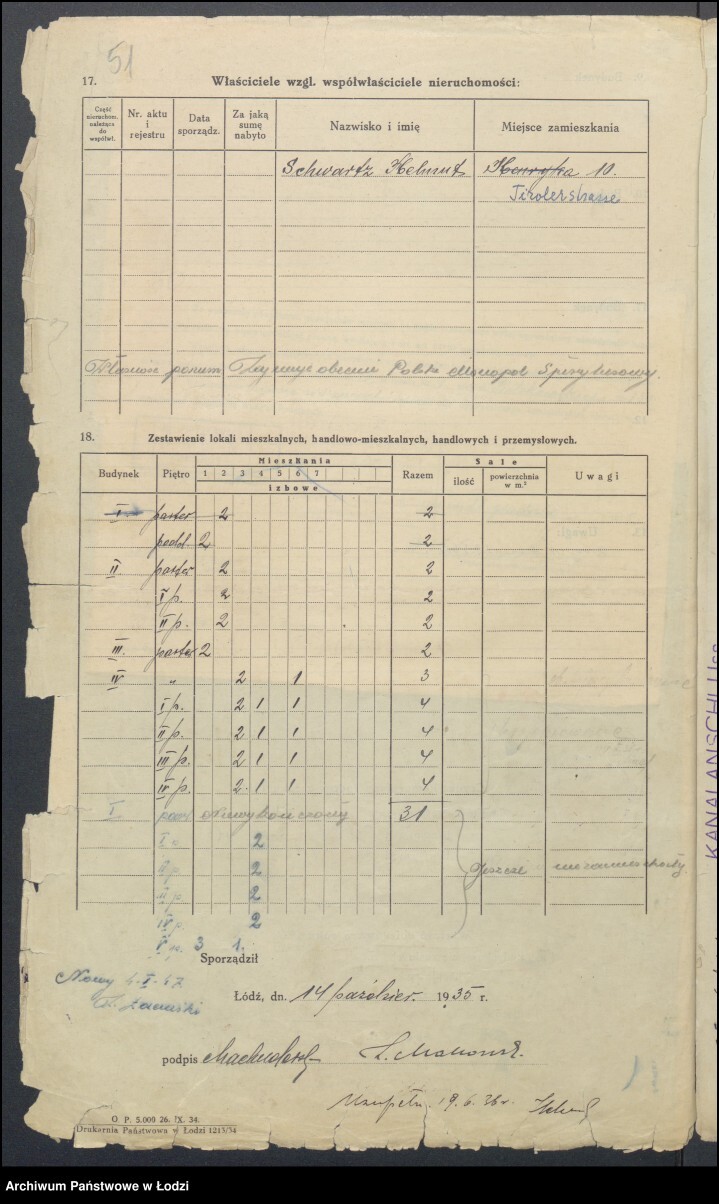 51
17. Właściciele wzgl. współwłaściciele nieruchomości:
Część nieruchom. należąca do współwł. Nr. aktu i rejestru Data sporządz. Za jaką sumę nabyto Nazwisko i imię Miejsce zamieszkania
Schwartz Helmut Henryka 10.
Tirolerstrasse
Własność ponum obecnie Polski Monopol Spirytusowy.
18. Zestawienie lokali mieszkalnych, handlowo-mieszkalnych, handlowych i przemysłowych.
Budynek Piętro Mieszkania Razem Sale Uwagi
1 2 3 4 5 6 7 ilość powierzchnia w m.²
izbowe
I. parter 2 2
podd. 2 2
II parter 2 2
I p. 2 2
II p. 2 2
III. parter 2 2
IV „ 2 1 3
I p. 2 1 1 4
II p. 2 1 1 4
III p. 2 1 1 4
IV p. 2 1 1 4
I niewykończony 31
I p. 2
II p. 2 Jeszcze niezamieszkały.
III p. 2
IV p. 2
V p. 3 1.
Sporządził
Nowy 4-I-47
Łódź, dn. 14 październ. 1935 r.
podpis
Uzupełn. 19.6.36 r.
O P. 5.000 26. IX. 34.
Drukarnia Państwowa w Łodzi 1213/34
KANALANSCHLUSS
Archiwum Państwowe w Łodzi